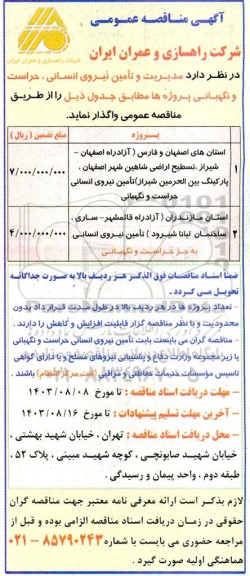 آگهی مناقصه عمومی
شرکت راهسازی و عمران ایران
شرکت راهسازی و عمران ایران
در نظر دارد مدیریت و تأمین نیروی انسانی ، حراست
و نگهبانی پروژه ها مطابق جدول ذیل را از طریق
مناقصه عمومی واگذار نماید.
پروژه
مبلغ تضمین ( ریال )
۱
استان های اصفهان و فارس ( آزادراه اصفهان -
شیراز ,تسطیح اراضی شاهین شهر اصفهان ,
پارکینگ بین الحرمین شیراز)تأمین نیروی انسانی
حراست و نگهبانی
۷/۰۰۰/۰۰۰/۰۰۰
۲
استان مازندران ( آزادراه قائمشهر- ساری ,
ساختمان لیانا شیرود ) تأمین نیروی انسانی
به جز حراست و نگهبانی
۴/۰۰۰/۰۰۰/۰۰۰
ضمناً اسناد مناقصات فوق الذکر هر ردیف بالا به صورت جداگانه
تحویل می گردد .
تعداد پروژه ها در هر ردیف بالا در طول مدت قرار داد بدون
محدودیت و با نظر مناقصه گزار قابلیت افزایش و کاهش را دارند .
- مناقصه گران می بایست بابت تأمین نیروی انسانی حراست و نگهبانی
یا زیر مجموعه وزارت دفاع و پشتیبانی نیروهای مسلح و یا دارای گواهی
تاسیس مؤسسات خدمات حفاظتی و مراقبی باشند.
- مهلت دریافت اسناد مناقصه : تا مورخ ۱۴۰۳/۰۸/۰۸
- آخرین مهلت تسلیم پیشنهادات : تا مورخ ۱۴۰۳/۰۸/۱۶
- محل دریافت اسناد مناقصه : تهران , خیابان شهید بهشتی ,
خیابان شهید صابونچی , کوچه شهید مبینی , پلاک ۵۲ ,
طبقه دوم , واحد پیمان و رسیدگی .
لازم بذکر است ارائه معرفی نامه معتبر جهت مناقصه گران
حقوقی در زمان دریافت اسناد مناقصه الزامی بوده و قبل از
مراجعه حضوری می بایست با شماره ۸۵۷۹۰۲۴۳ - ۰۲۱
هماهنگی اولیه صورت گیرد .